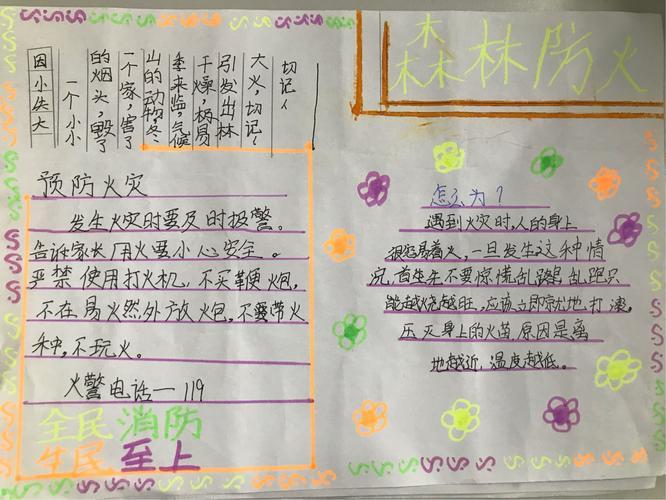 森林防火
因小失大
一个小小
的烟头,毁了
一个家,害了
山的动物,冬
季来临,气候
干燥,极易
引发出林
大火,切记!
切记!
预防火灾
发生火灾时要及时报警。
告诉家长用火要小心安全。
严禁使用打火机,不买鞭炮,
不在易火然外放火包,不要带火
种,不玩火。
火警电话一119
全民消防
生民至上
怎么为?
遇到火灾时,人的身上
很容易着火,一旦发生这种情
况,首先不要惊慌乱跑,乱跑只
能越烧越旺,应该立即就地打滚,
压灭身上的火苗,原因是离
地越近,温度越低。